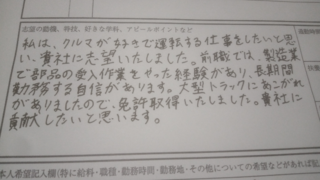 志望の動機、特技、好きな学科、アピールポイントなど
私は、クルマが好きで運転する仕事をしたいと思
い、貴社に志望いたしました。前職では、製造業
で部品の受入作業をやった経験があり、長期間
勤務する自信があります。大型トラックにあこがれ
がありましたので、免許取得いたしました。貴社に
貢献したいと思います。
本人希望記入欄(特に給料・職種・勤務時間・勤務地・その他についての希望などがあれば記